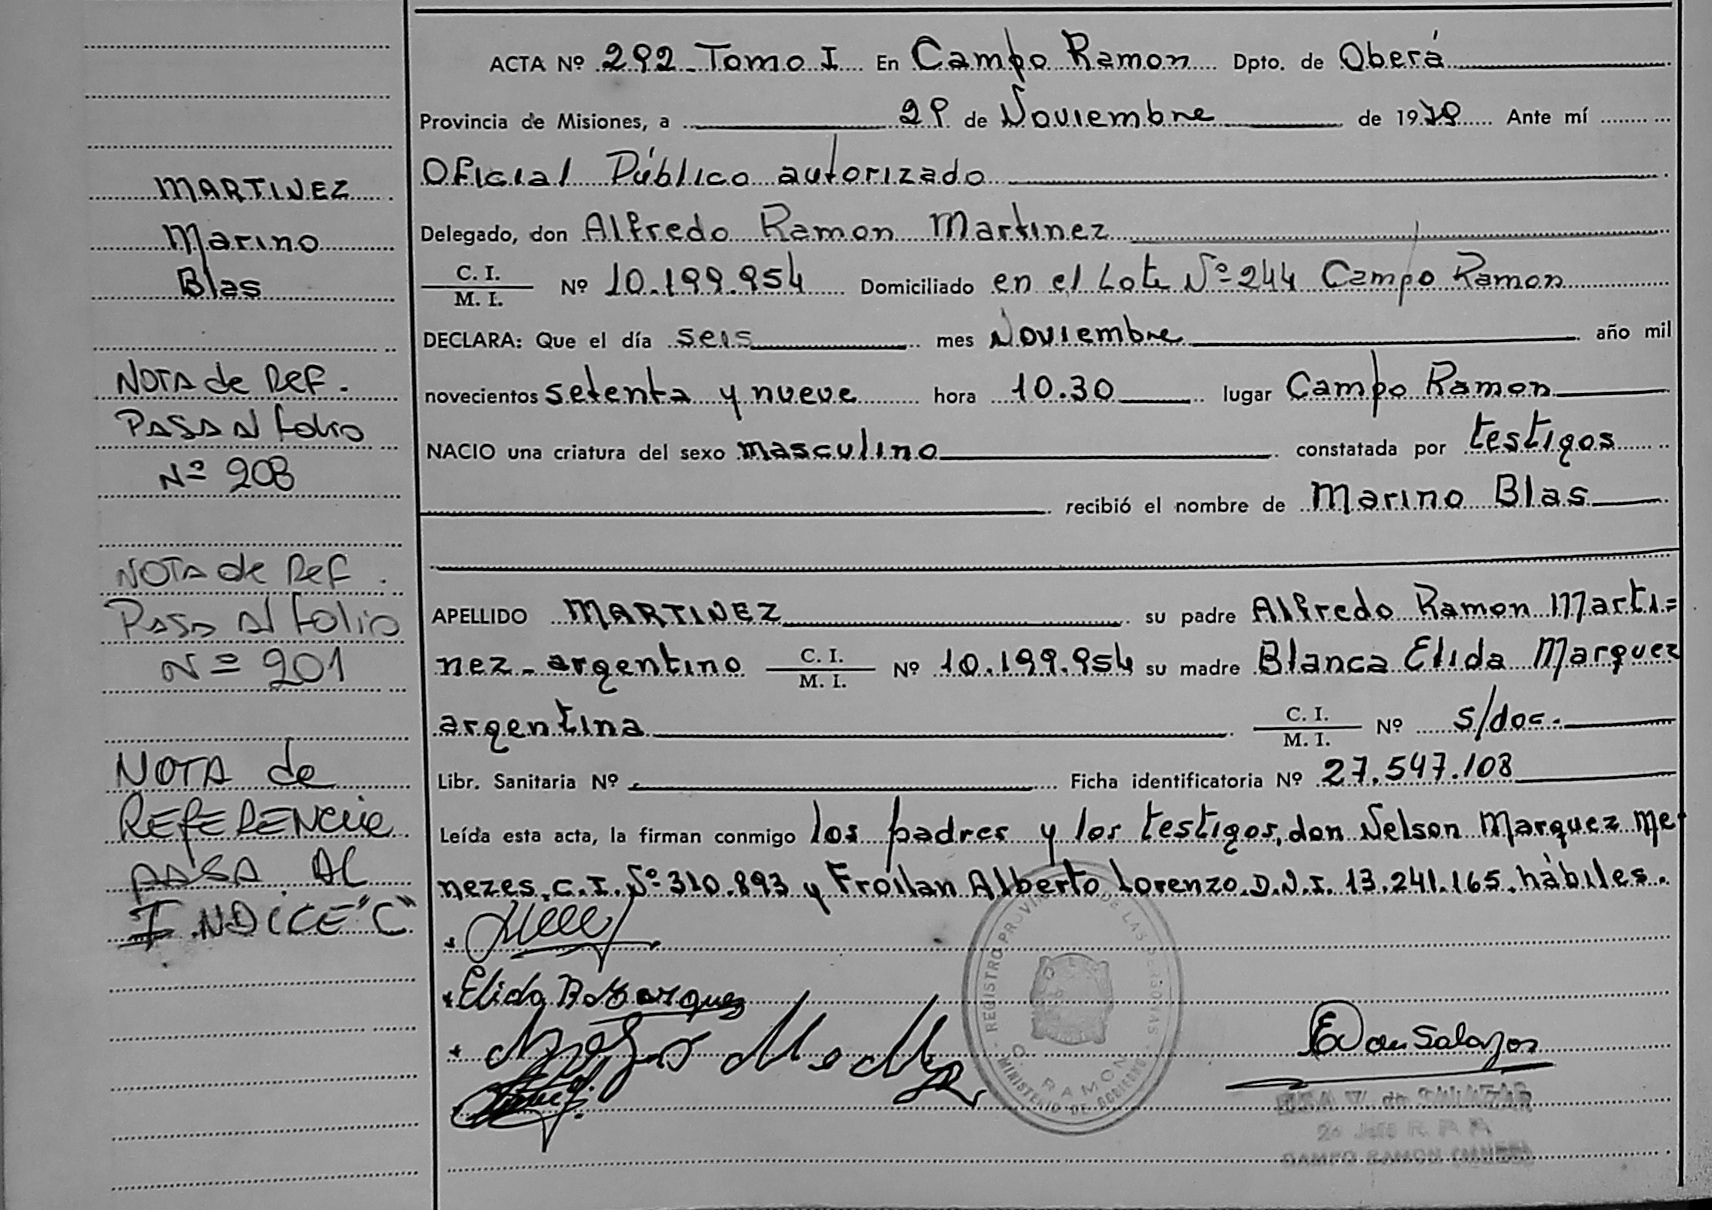 MARTINEZ
Marino
Blas
NOTA de REF.
PASA Al folio
Nº 208
NOTA de REF.
PASA Al folio
Nº 201
NOTA de
REFERENCIA
PASA AL
INDICE "C"
ACTA Nº 292 Tomo I En Campo Ramon Dpto. de Oberá
Provincia de Misiones, a 29 de Noviembre de 1979 Ante mí
Oficial Público autorizado
Delegado, don Alfredo Ramon Martinez
C. I.
M. I. Nº 10.199.954 Domiciliado en el Lote Nº 244 Campo Ramon
DECLARA: Que el día seis mes Noviembre año mil
novecientos setenta y nueve hora 10.30 lugar Campo Ramon
NACIO una criatura del sexo masculino constatada por testigos
recibió el nombre de Marino Blas
APELLIDO MARTINEZ su padre Alfredo Ramon Marti=
nez - argentino C. I. M. I. Nº 10.199.954 su madre Blanca Elida Marquez
argentina C. I. M. I. Nº s/doc.
Libr. Sanitaria Nº Ficha identificatoria Nº 27.547.108
Leída esta acta, la firman conmigo los padres y los testigos, don Nelson Marquez Me
nezes, C.I. Nº 310.893 y Froilan Alberto Lorenzo D.N.I. 13.241.165, hábiles.
REGISTRO PROVINCIAL DE LAS PERSONAS
C. RAMON
MINISTERIO DE GOBIERNO
Elida B Marquez
E V de Salazar
V. de SALAZAR
2º Jefe R. P. P.
CAMPO RAMON (MNES)